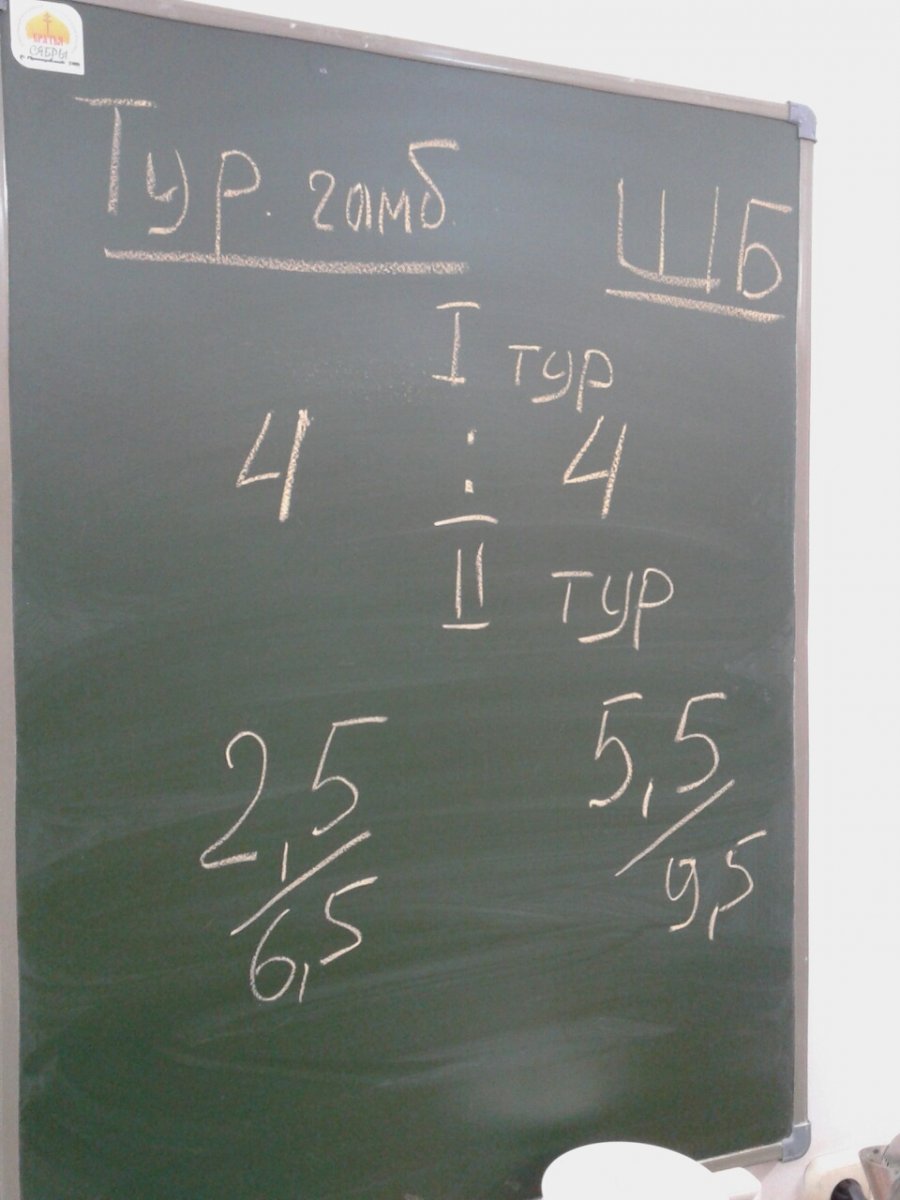 БРАТЬЯ
СЯБРЫ
Тур. гамб. ШБ
I тур
4 : 4
II тур
2,5 5,5
6,5 9,5